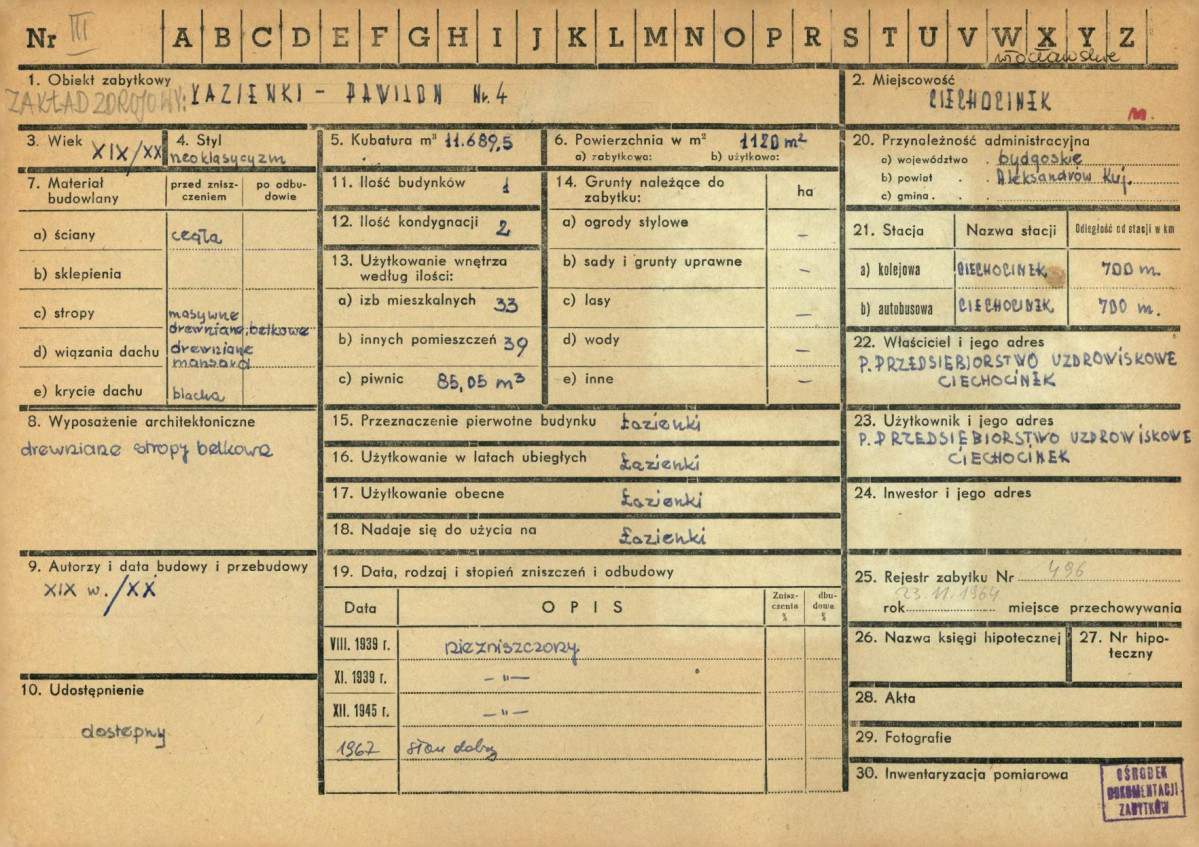 Nr III A B C D E F G H I J K L M N O P R S T U V W X Y Z
włocławskie
1. Obiekt zabytkowy
ZAKŁAD ZDROJOWY: ŁAZIENKI - PAWILON Nr. 4
2. Miejscowość
CIECHOCINEK
m.
3. Wiek XIX/XX
4. Styl
neoklasycyzm
5. Kubatura m³ 11.689,5
6. Powierzchnia w m² 1120 m²
a) zabytkowa: b) użytkowa:
20. Przynależność administracyjna
a) województwo . bydgoskie
b) powiat . . Aleksandrów Kuj.
c) gmina . . .
7. Materiał budowlany
przed znisz-
czeniem
po odbu-
dowie
a) ściany cegła
b) sklepienia
c) stropy masywne
drewniane, belkowe
d) wiązania dachu drewniane
mansard
e) krycie dachu blacha
11. Ilość budynków 1
12. Ilość kondygnacji 2
13. Użytkowanie wnętrza
według ilości:
a) izb mieszkalnych 33
b) innych pomieszczeń 39
c) piwnic 85,05 m³
14. Grunty należące do
zabytku:
ha
a) ogrody stylowe –
b) sady i grunty uprawne –
c) lasy –
d) wody –
e) inne –
21. Stacja Nazwa stacji Odległość od stacji w km
a) kolejowa CIECHOCINEK 700 m.
b) autobusowa CIECHOCINEK 700 m.
22. Właściciel i jego adres
P. PRZEDSIĘBIORSTWO UZDROWISKOWE
CIECHOCINEK
8. Wyposażenie architektoniczne
drewniane stropy belkowe
15. Przeznaczenie pierwotne budynku Łazienki
16. Użytkowanie w latach ubiegłych Łazienki
17. Użytkowanie obecne Łazienki
18. Nadaje się do użycia na Łazienki
23. Użytkownik i jego adres
P. PRZEDSIĘBIORSTWO UZDROWISKOWE
CIECHOCINEK
24. Inwestor i jego adres
9. Autorzy i data budowy i przebudowy
XIX w. /XX
19. Data, rodzaj i stopień zniszczeń i odbudowy
Data OPIS
Znisz-
czenia
%
dbu-
dowa
%
VIII. 1939 r. niezniszczony
XI. 1939 r. – " –
XII. 1945 r. – " –
1967 stan dobry
10. Udostępnienie
dostępny
25. Rejestr zabytku Nr 496
rok 23.11.1964 miejsce przechowywania
26. Nazwa księgi hipotecznej
27. Nr hipo-
teczny
28. Akta
29. Fotografie
30. Inwentaryzacja pomiarowa
OŚRODEK
DOKUMENTACJI
ZABYTKÓW